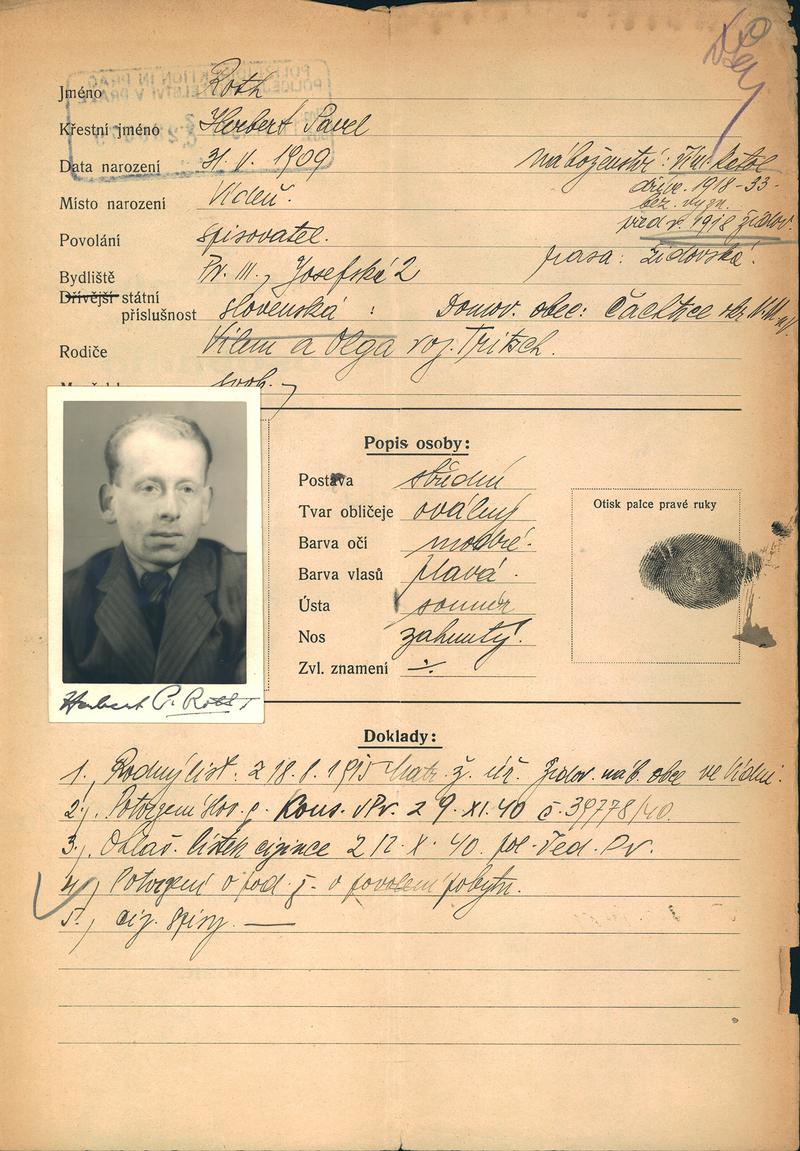 Jméno Roth
Křestní jméno Herbert Pavel
Data narození 31. V. 1909 náboženství: řím. katol
dříve 1918-33-
bez. vyzn.
Místo narození Vídeň.
před r. 1918 židov.
Povolání spisovatel.
rasa: židovská.
Bydliště Pr. III., Josefská 2
Dřívější státní
příslušnost slovenská: Domov. obec: Čachtice
Rodiče Vilém a Olga roz. Tritsch.
svob.
Popis osoby:
Postava střední
Tvar obličeje oválný
Barva očí modré.
Barva vlasů plavá.
Ústa souměr
Nos zahnutý.
Zvl. znamení -/.
Otisk palce pravé ruky
Herbert P. Roth
Doklady:
1., Rodný list. z 18.8. 1915 Matr. ž. úř. židov. náb. obce ve Vídni.
2., Potvrzení slov. g. Kons. v Pr. z 9. XI. 40 č. 39778/40.
3., Ohlaš. lístek cizince z 17. X. 40. pol. řed. Pr.
4., Potvrzení o pod. ž. o povolení pobytu.
5., ciz. spisy. —